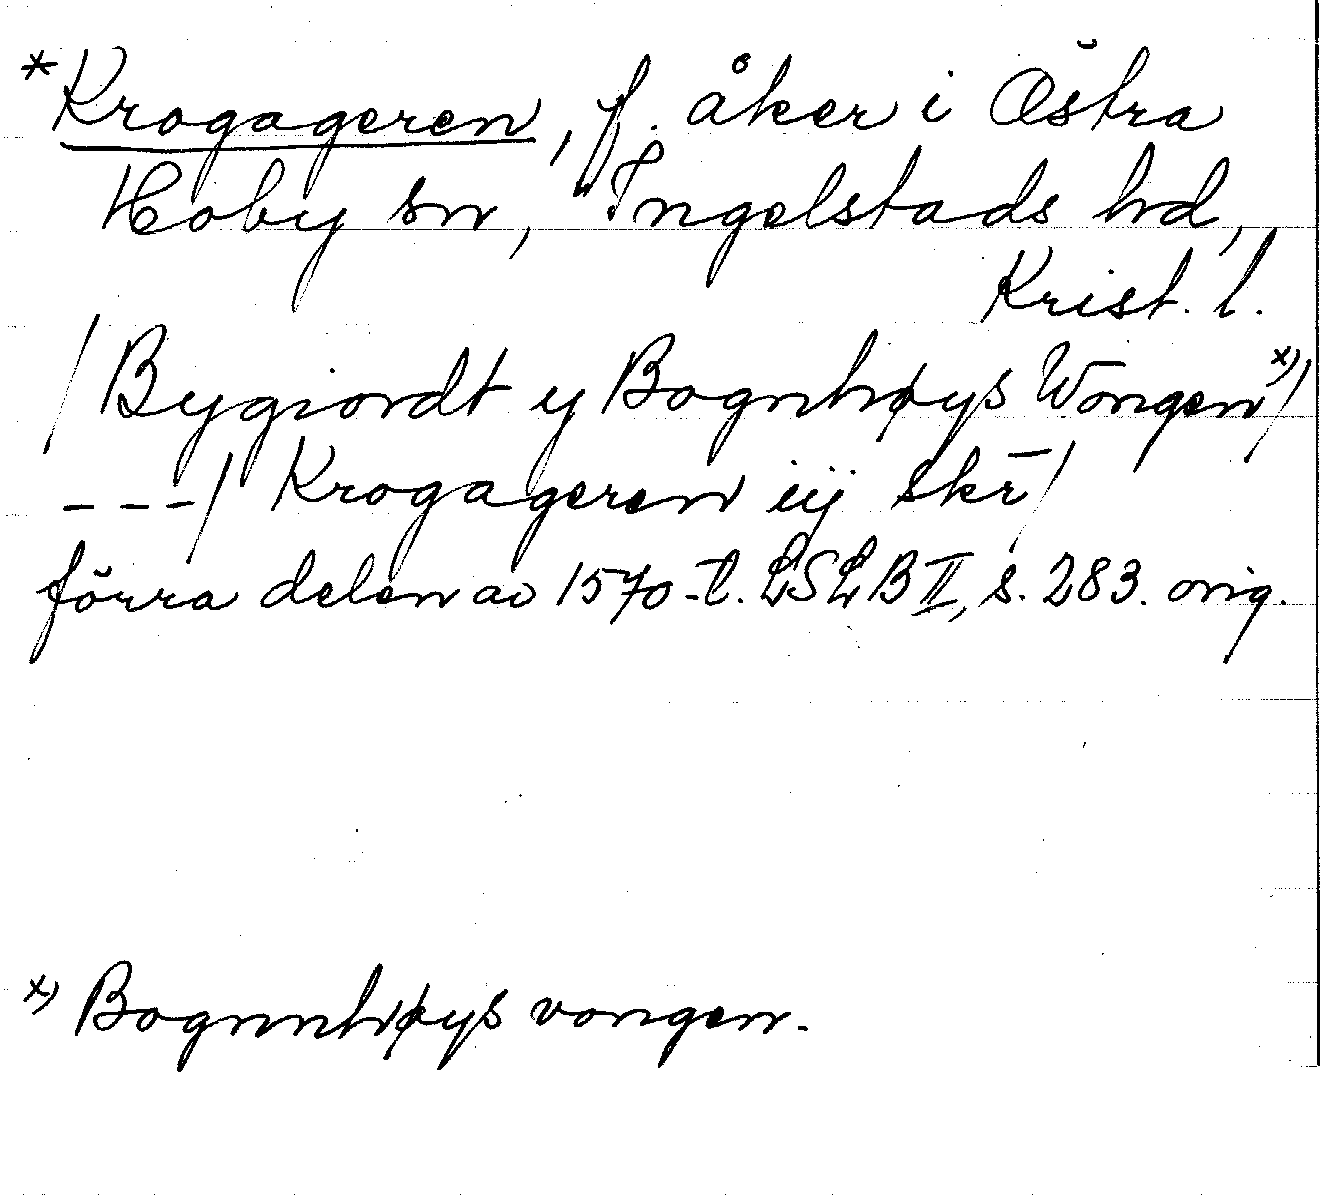 *Krogageren, f. åker i Östra
Hoby sn, Ingelstads hd,
Krist. l.
/Bygiordt y Bognhøys Wongen x)/
---/ Krogageren iij skr̄/
förra delen av 1570-t. LSLB II, s. 283. orig.
x) Bognnhøys vongen.